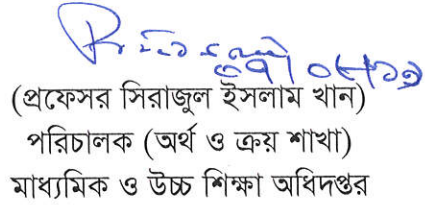 (প্রফেসর সিরাজুল ইসলাম খান)
পরিচালক (অর্থ ও ক্রয় শাখা)
মাধ্যমিক ও উচ্চ শিক্ষা অধিদপ্তর